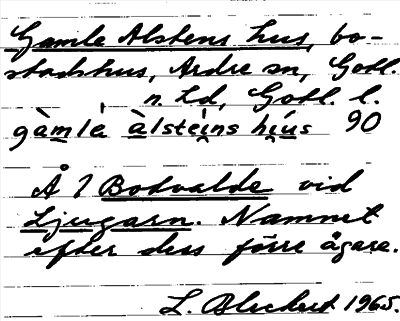 Gamle Alstens hus, bo-
stadshus, Ardre sn, Gotl.
n. hd, Gotl. l.
gàmlȧ àlstei̯ns hi̯u̇s 90
Å 7 Bodvalde vid
Ljugarn. Namnet
efter dess förre ågare.
L. Bleckert 1965.